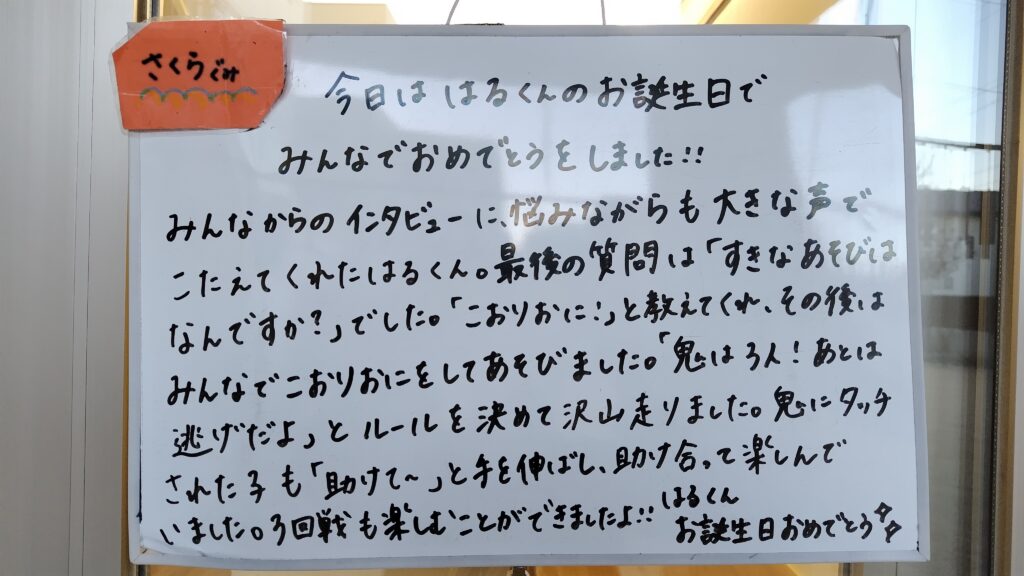 さくらぐみ
今日は はるくんのお誕生日で
みんなでおめでとうをしました!!
みんなからのインタビューに、悩みながらも大きな声で
こたえてくれたはるくん。最後の質問は「すきなあそびは
なんですか?」でした。「こおりおに!」と教えてくれ、その後は
みんなでこおりおにをしてあそびました。「鬼は3人!あとは
逃げだよ」とルールを決めて沢山走りました。鬼にタッチ
された子も「助けて〜」と手を伸ばし、助け合って楽しんで
いました。3回戦も楽しむことができましたよ!!
はるくん
お誕生日おめでとう